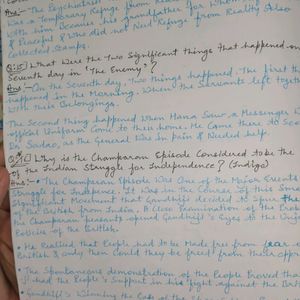 Ans:- The Psychiatrist
Was a Temporary Refuge from Rea
with him because his grandfather for whom
& Peaceful & Who did not Need Refuge from Reality Also
Collected Stamps.
Q:15) What were the Two Significant things that happened on
Seventh day in 'The Enemy'?
Ans:- On the Seventh day, Two things happened. The first th
happened in the Morning. When the Servants left togeth
With their Belongings.
The Second thing happened When Hana Saw, a Messenger
official Uniform Come to their home. He Came there to See
Dr Sadao, as the General Was in Pain & Needed help.
Why is the Champaran Episode Considered to be the
of the Indian Struggle for Independence? (Indigo)
Ans:- The Champaran Episode Was One of the Major Events
Struggle for Independence. It Was in the Course of this Small
Significant Movement that Gandhiji decided to Spur the
of the British from India. A Close Examination of the
the Champaran Peasants opened Gandhiji's Eyes to the Unju
Policies of the British.
• He Realised that People had to be Made free from fear
British & only then Could they be freed from their oppr
• The Spontaneous demonstration of the People Proved that
it had the People's Support in his fight against the Brit
Gandhiji's Winning the Case of the